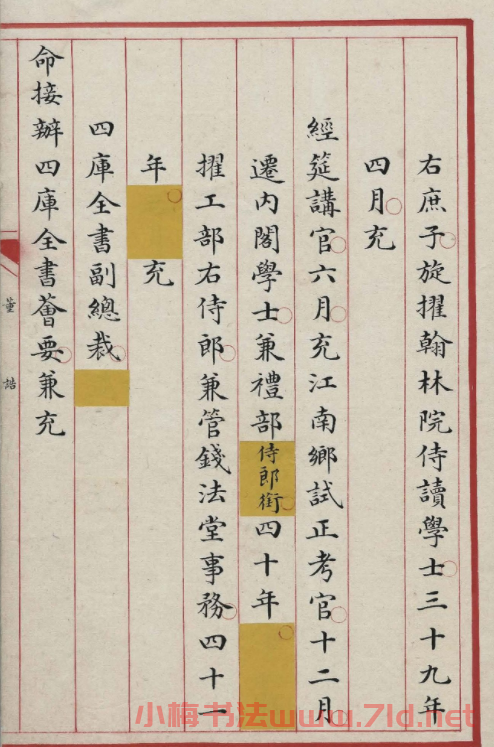 右庶子旋擢翰林院侍讀學士三十九年
四月充
經筵講官六月充江南鄉試正考官十二月
遷內閣學士兼禮部侍郎銜四十年
擢工部右侍郎兼管錢法堂事務四十一
年充
四庫全書副總裁
命接辦四庫全書薈要兼充
董誥
小梅书法www.7ld.net